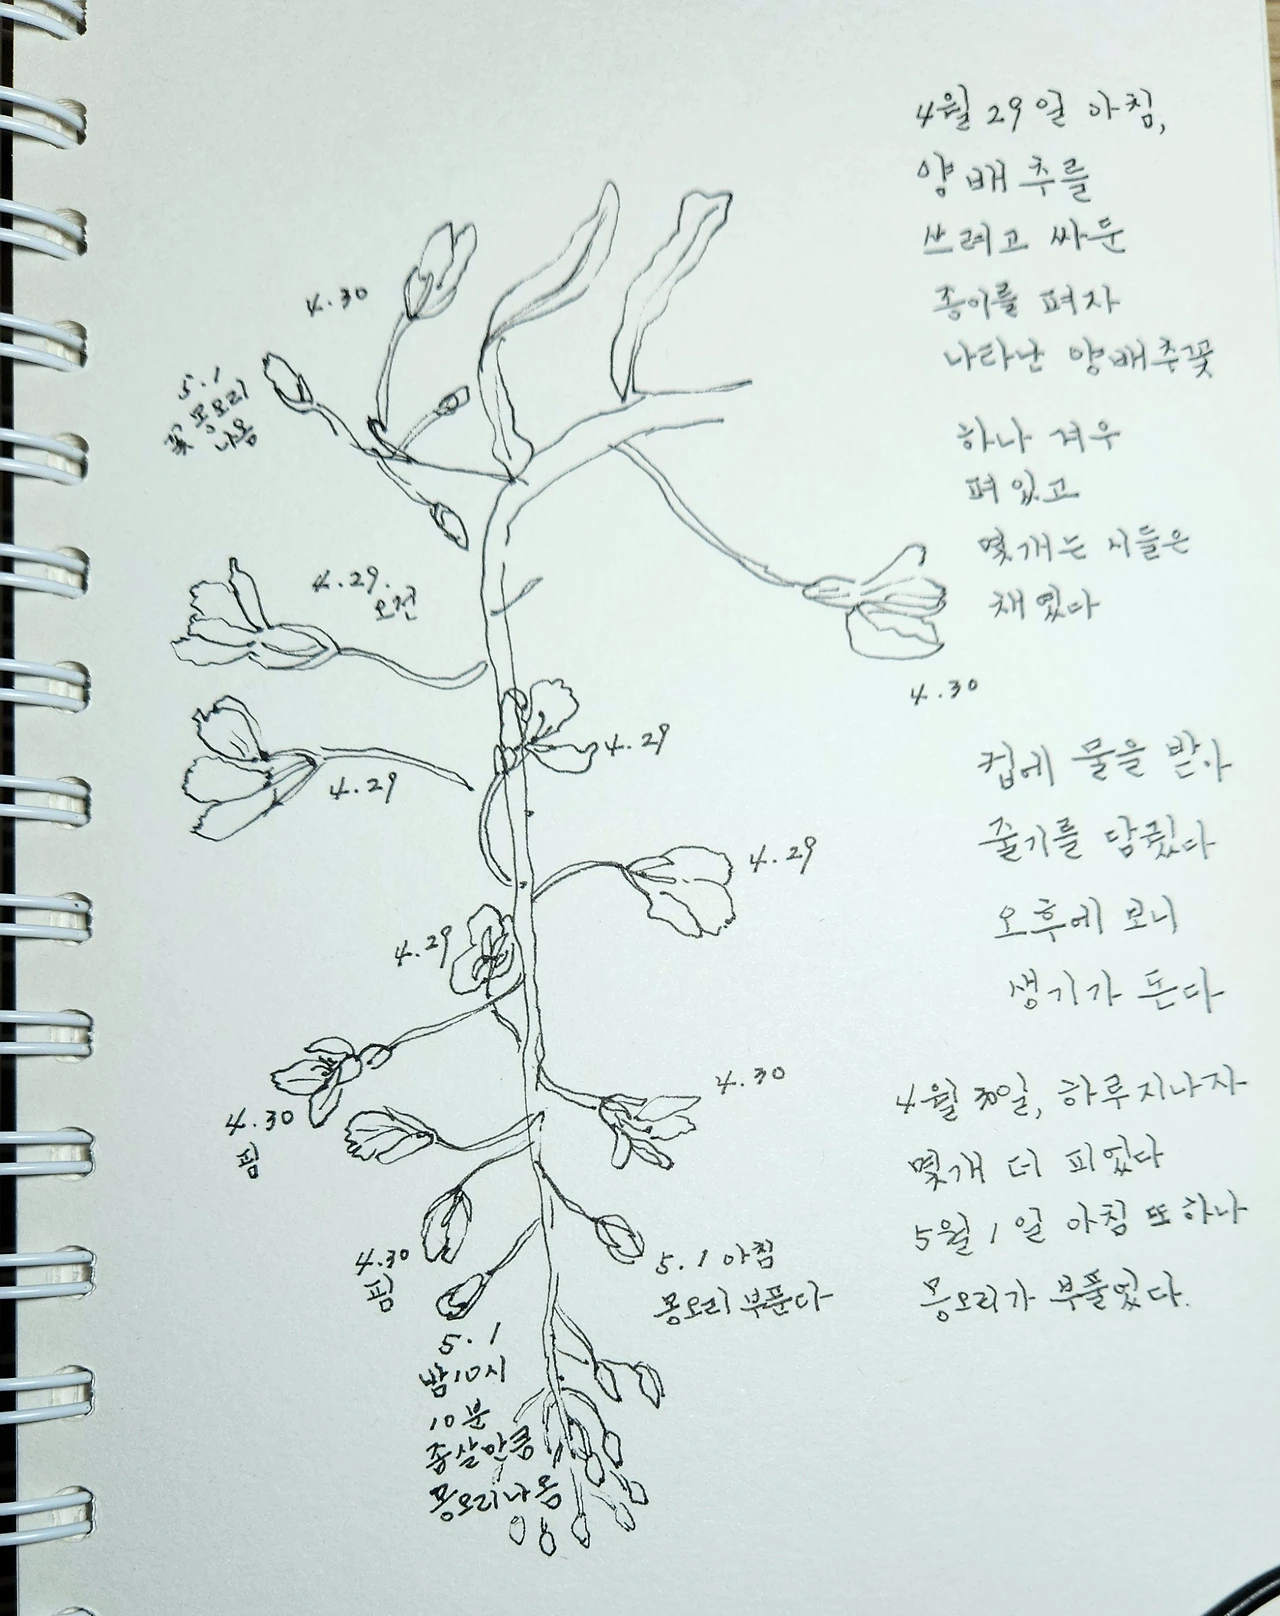 4월 29일 아침,
양배추를
쓰려고 싸둔
종이를 펴자
나타난 양배추꽃
하나 겨우
펴있고
몇개는 시들은
채였다
컵에 물을 받아
줄기를 담궜다
오후에 보니
생기가 돈다
4월 30일, 하루지나자
몇개 더 피었다
5월 1일 아침 또 하나
몽오리가 부풀었다.
4.30
5.1
꽃몽오리
나옴
4.29.
오전
4.30
4.29
4.29
4.29
4.29
4.30
4.30
핌
4.30
핌
5.1 아침
몽오리 부푼다
5.1
밤10시
10분
좁쌀만큼
몽오리 나옴